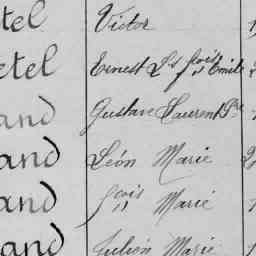 tel Victor
etel Ernest Ls fçois Emile
and Gustave Laurent
and Léon Marie 2
and fçois Marie
and Julien Marie